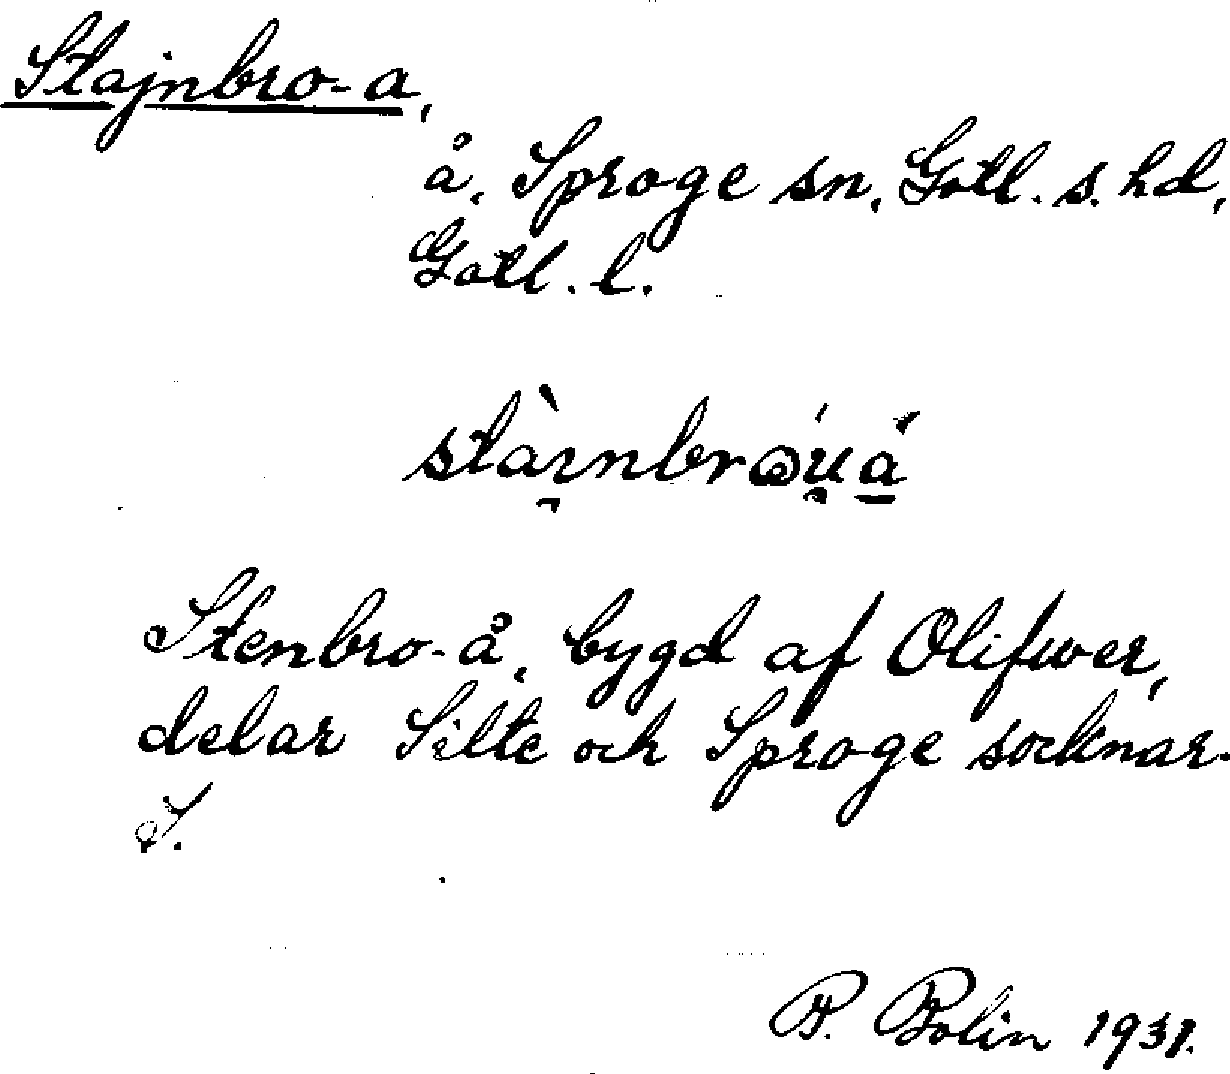 Stajnbro-a,
å, Sproge sn, Gotl. s. hd,
Gotl. l.
Stenbro-å, bygd af Olifwer,
delar Silte och Sproge socknar.
P. Bolin 1931.